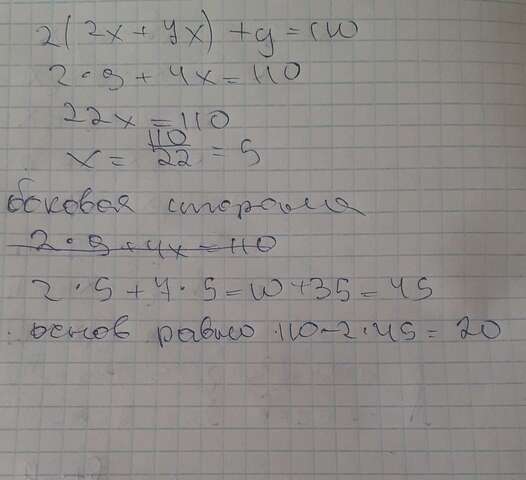 2(2x+7x)+y=110
2·9+4x=110
22x=110
x=110/22=5
боковая сторона
2·9+4x=110
2·5+7·5=10+35=45
основ равно 110-2·45=20